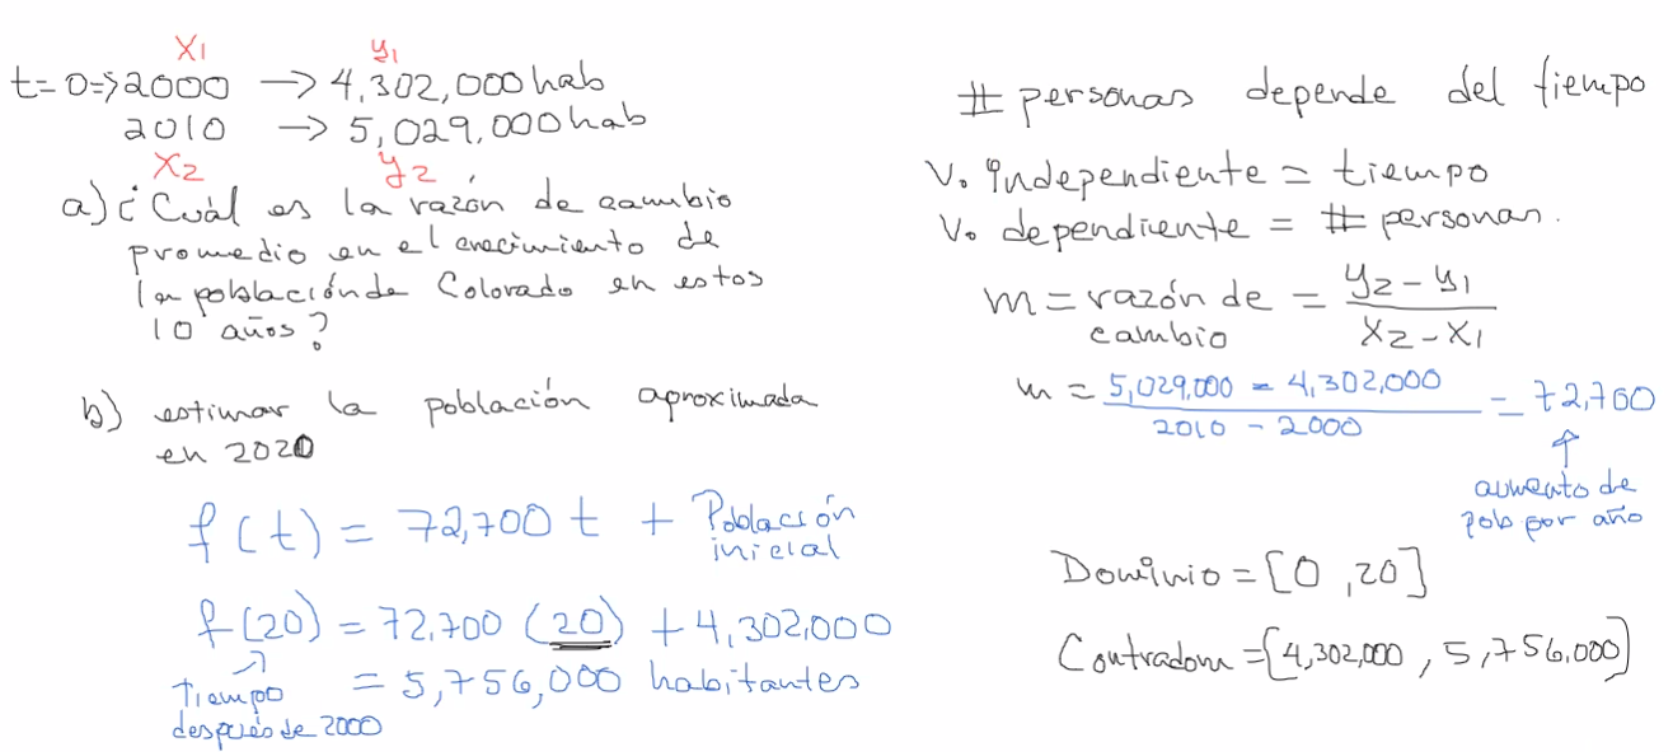 x1 y1
t=0⇒2000 → 4,302,000 hab
2010 → 5,029,000 hab
x2 y2
a) ¿Cuál es la razón de cambio
promedio en el crecimiento de
la población de Colorado en estos
10 años?
b) estimar la población aproximada
en 2020
f(t) = 72,700 t + Población
inicial
f(20) = 72,700 (20) + 4,302,000
= 5,756,000 habitantes
Tiempo
después de 2000
# personas depende del tiempo
V. independiente = tiempo
V. dependiente = # personas.
m = razón de = y2 - y1
cambio x2 - x1
m = 5,029,000 - 4,302,000 = 72,700
2010 - 2000
aumento de
pob por año
Dominio = [0, 20]
Contradom = [4,302,000, 5,756,000]